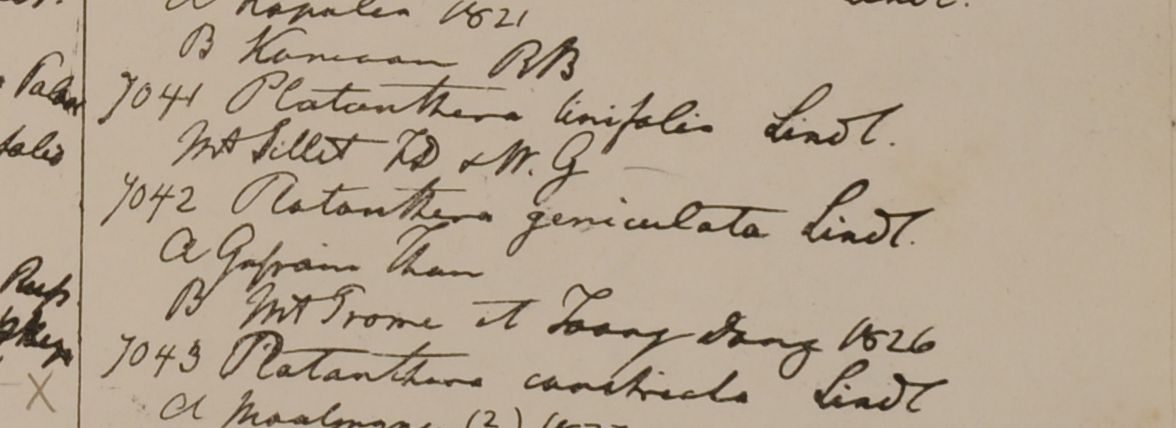 A Napalia 1821
B Kamaon RB
7041 Platanthera linifolia Lindl.
Mt Sillet FD & W. G
7042 Platanthera geniculata Lindl.
A Gossain Than
B Mt Prome et Toong Dong 1826
7043 Platanthera constricta Lindl
A Moalmyne (2)
X